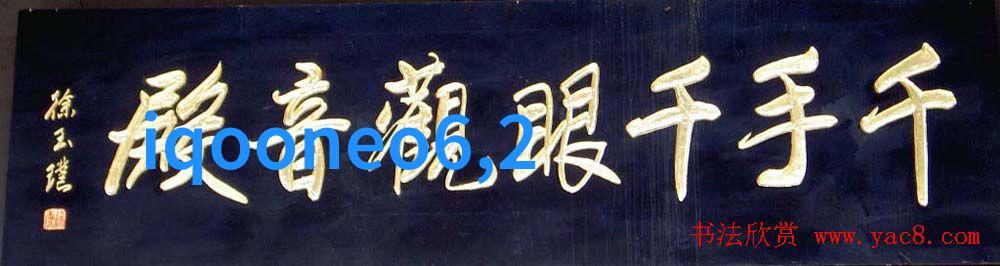 千手千眼觀音殿
徐玉璞
iqooneo6,2
书法欣赏 www.yac8.com